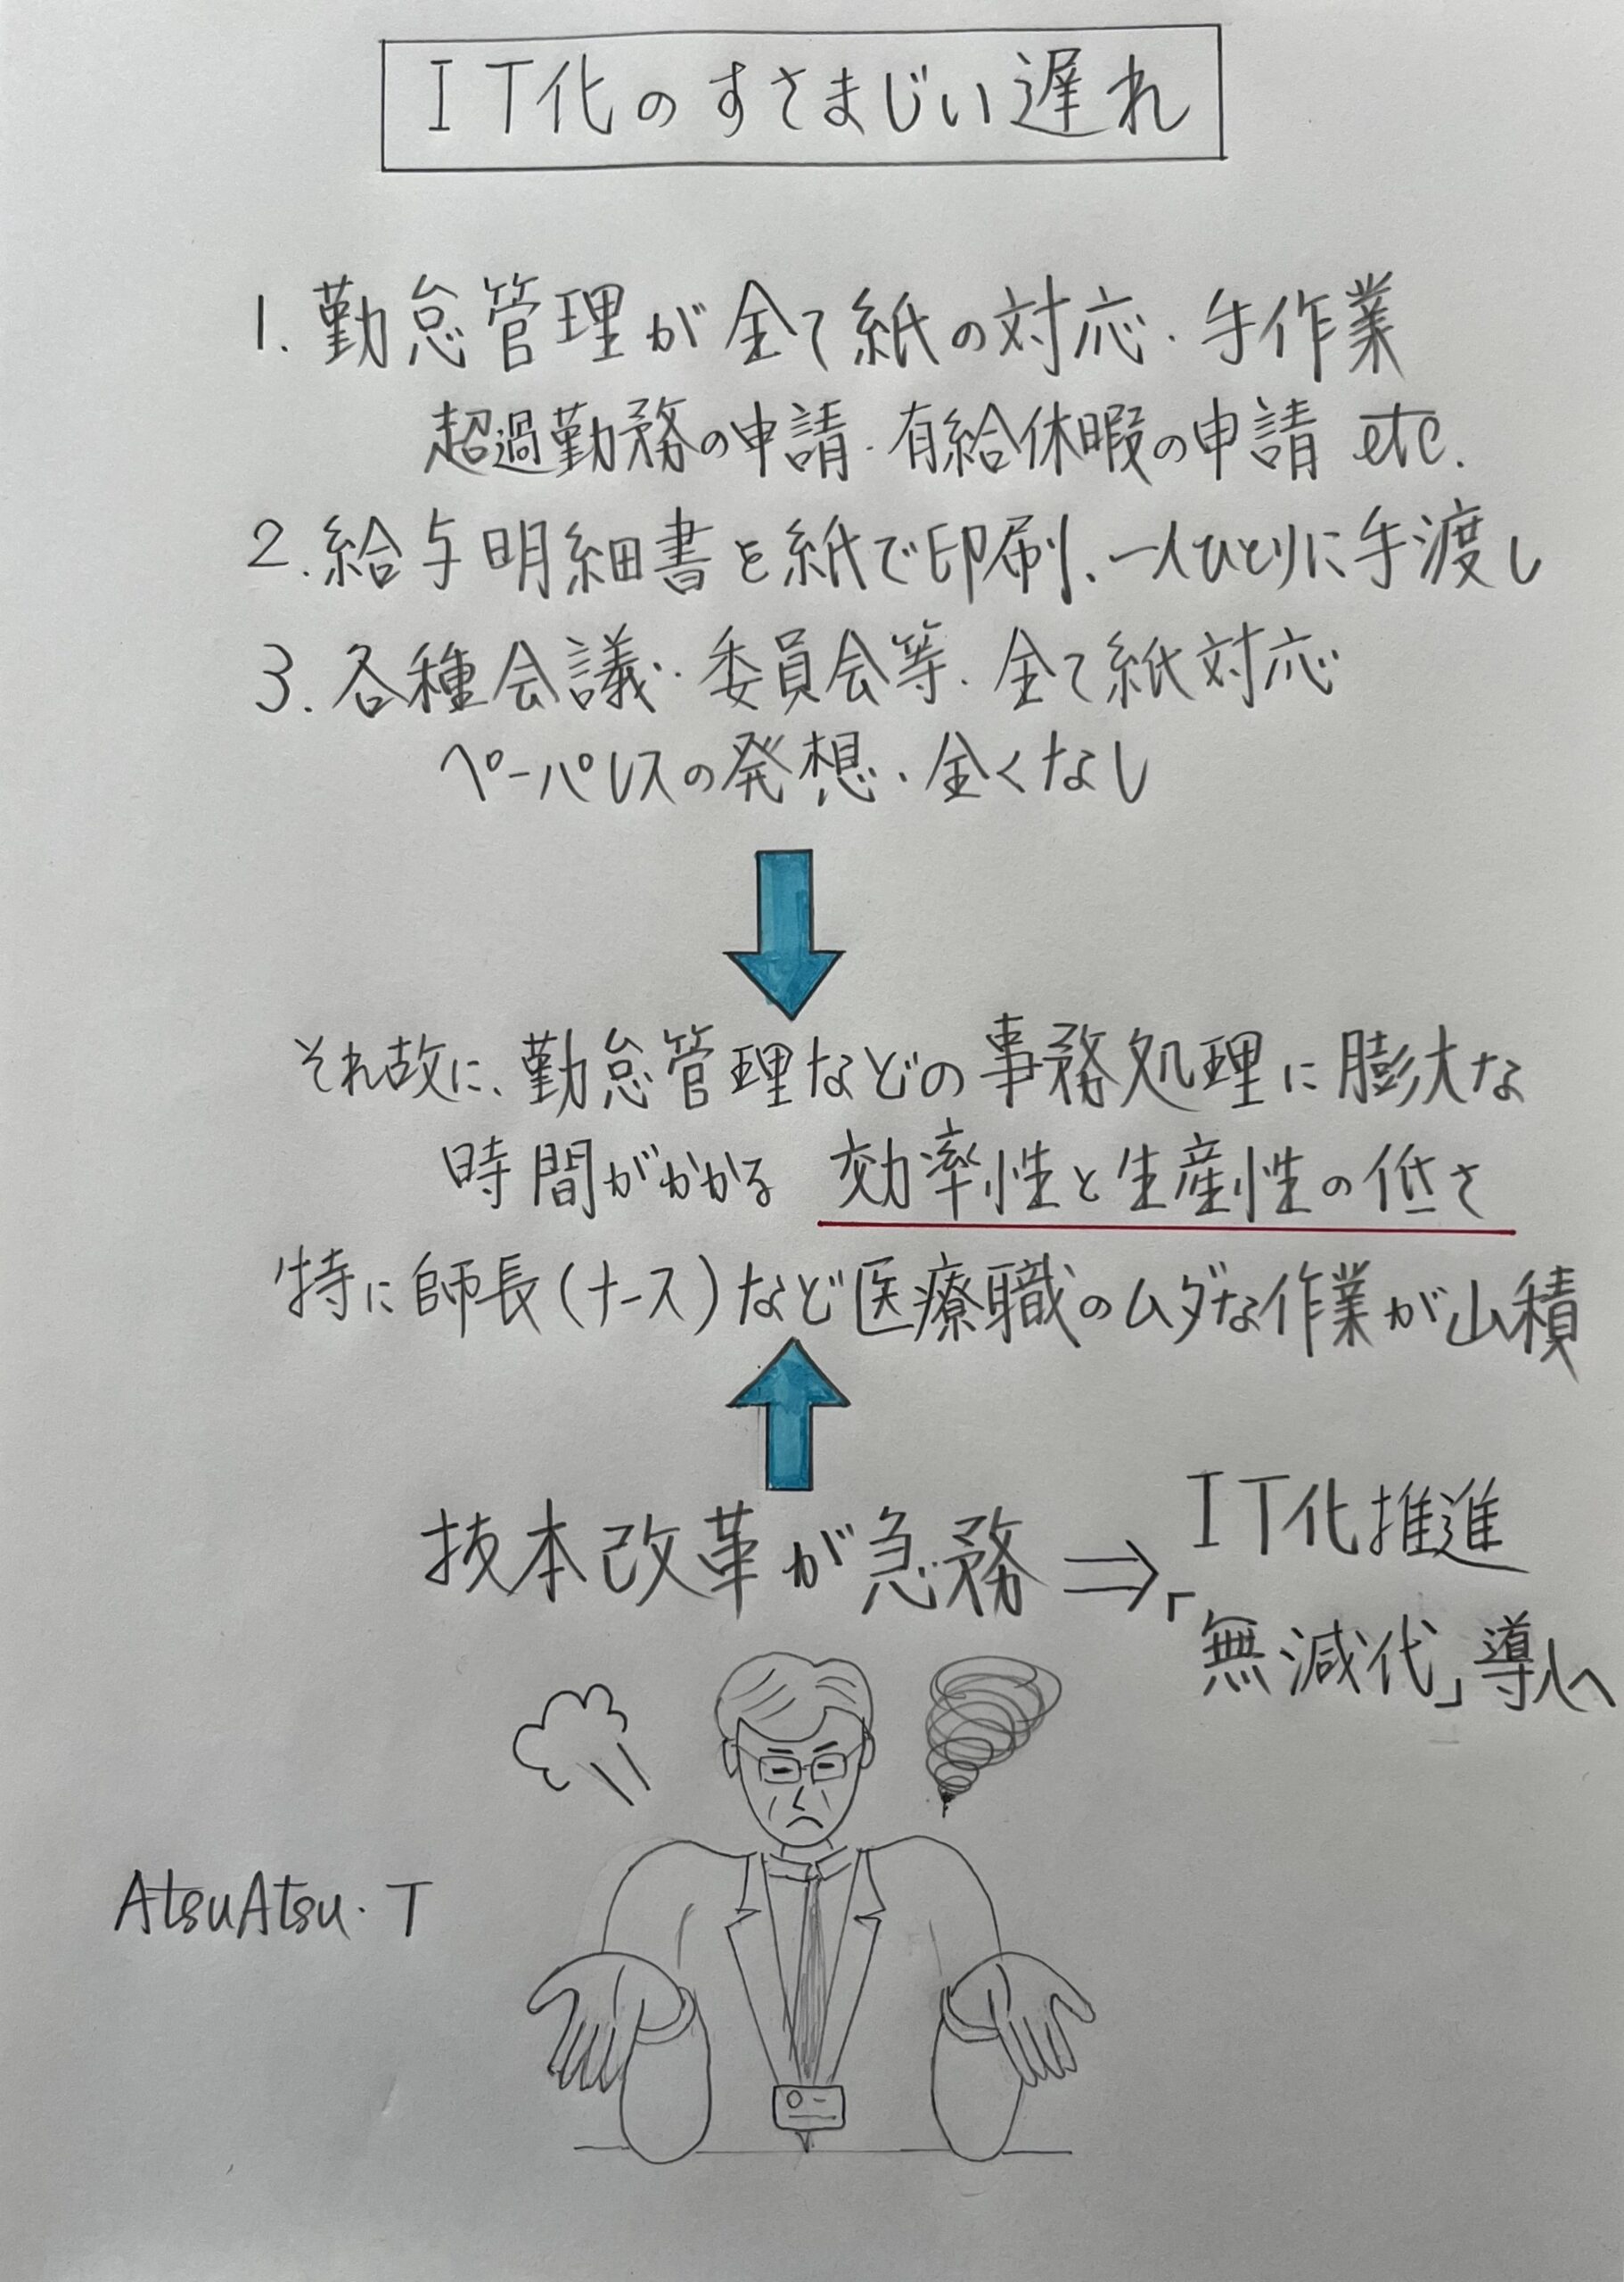 IT化のすさまじい遅れ
1. 勤怠管理が全て紙の対応・手作業
超過勤務の申請・有給休暇の申請 etc.
2. 給与明細書を紙で印刷、一人ひとりに手渡し
3. 各種会議・委員会等、全て紙対応
ペーパレスの発想、全くなし
それ故に、勤怠管理などの事務処理に膨大な
時間がかかる 効率性と生産性の低さ
特に師長(ナース)など医療職のムダな作業が山積
抜本改革が急務 ⇒ IT化推進
「無減代」導入へ
AtsuAtsu・T